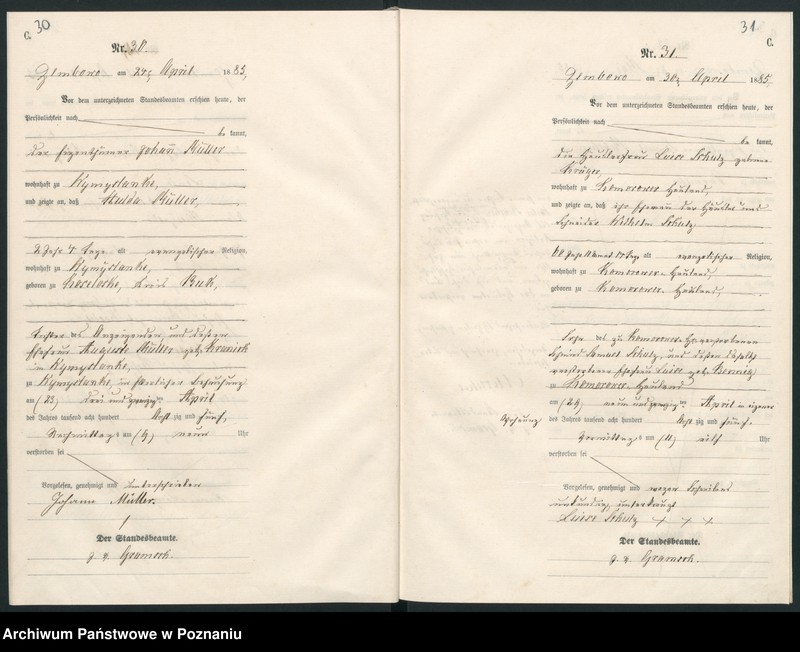 C. 30
Nr. 30.
am 24ten April 1885,
Vor dem unterzeichneten Standesbeamten erschien heute, der
Persönlichkeit nach
be kannt,
der Eigenthümer Johann Müller
wohnhaft zu
und zeigte an, daß Hulda Müller,
2 Jahr 4 Tage alt evangelischer Religion,
wohnhaft zu
geboren zu Kreis Buk,
Tochter des Anzeigenden, und dessen
Ehefrau Auguste Müller geb.
in
zu in Behausung
am (23) drei und zwanzigsten April
des Jahres tausend acht hundert acht zig und fünf,
Nachmittags um (9) neun Uhr
verstorben sei
Vorgelesen, genehmigt und unterschrieben
Johann Müller.
Der Standesbeamte.
31
C.
Nr. 31
am 30ten April 1885,
Vor dem unterzeichneten Standesbeamten erschien heute, der
Persönlichkeit nach
be kannt,
die Häuslerfrau Luise Schulz geborene
Krüger,
wohnhaft zu Komorower Hauland,
und zeigte an, daß ihr Ehemann der Häusler und
Schneider Wilhelm Schulz,
60 Jahr alt evangelischer Religion,
wohnhaft zu Komorower Hauland,
geboren zu Komorower Hauland,
Sohn des zu Komorower Hauland verstorbenen
Samuel Schulz, und dessen daselbst
verstorbenen Ehefrau Luise geb.
zu Komorower Hauland
am (29) neun und zwanzigsten April in eigener
Wohnung des Jahres tausend acht hundert acht zig und fünf,
Vormittags um (11) elf Uhr
verstorben sei
Vorgelesen, genehmigt und wegen Schreibens
unkundig unterkreuzt
Luise Schulz + + +
Der Standesbeamte.
Archiwum Państwowe w Poznaniu